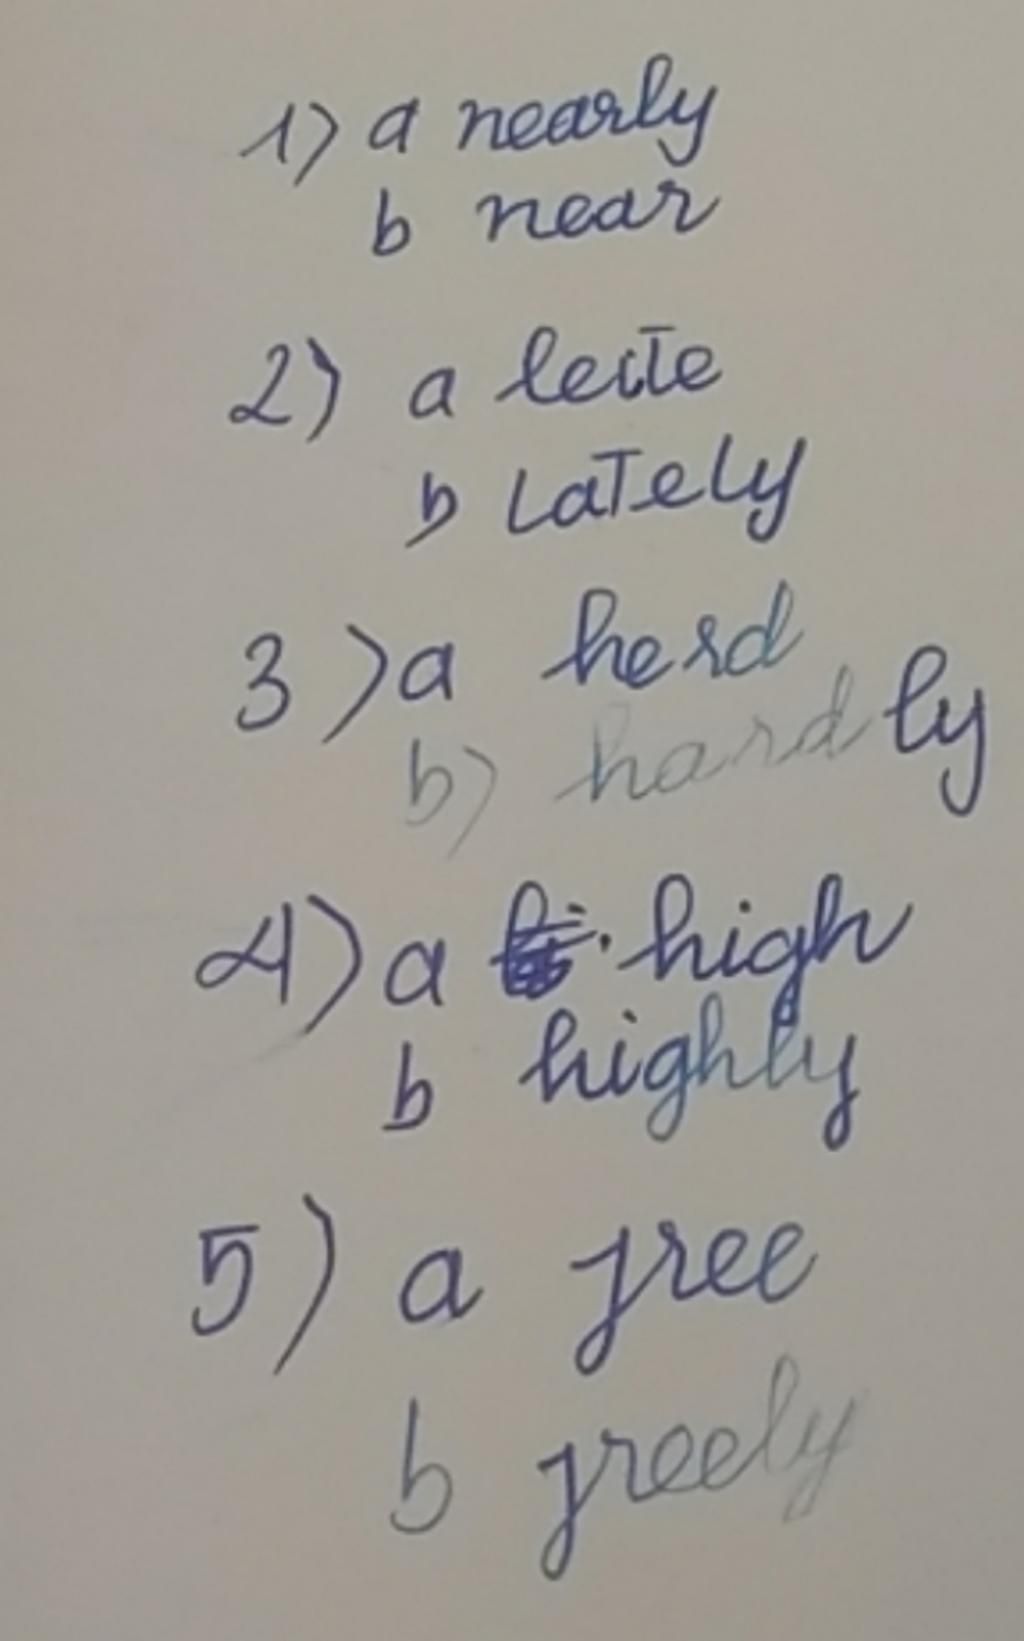 1) a nearly
b near
2) a late
b lately
3) a hard
b) hardly
4) a high
b highly
5) a free
b freely